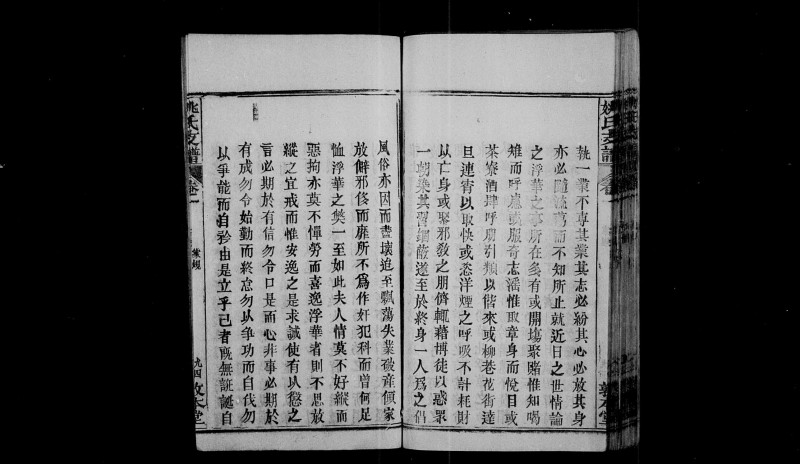 姚氏支譜 卷一
敦本堂
執一業不專其業其志必紛其心必放其身
亦必隨流蕩而不知所止就近日之世情論
之浮華之事所在多有或開場聚賭惟知喝
雉而呼盧或服奇志淫惟取章身而悅目或
茶寮酒肆呼朋引類以偕來或柳巷花街達
旦連宵以取快或恣洋煙之呼吸不計耗財
以亡身或聚邪敎之朋儕輒藉博徒以惑眾
一朝染其習錮蔽遂至於終身一人爲之倡
風俗亦因而盡壞迨至飄蕩失業破產傾家
放僻邪侈而靡所不爲作奸犯科而曾何足
恤浮華之獘一至如此夫人情莫不好縱而
惡拘亦莫不憚勞而喜逸浮華者則不思放
縱之宜戒而惟安逸之是求誠使有以懲之
言必期於有信勿令口是而心非事必期於
有成勿令始勤而終怠勿以爭功而自伐勿
以爭能而自矜由是立乎己者旣無誑誕自
姚氏支譜 卷一 家規 九四 敦本堂